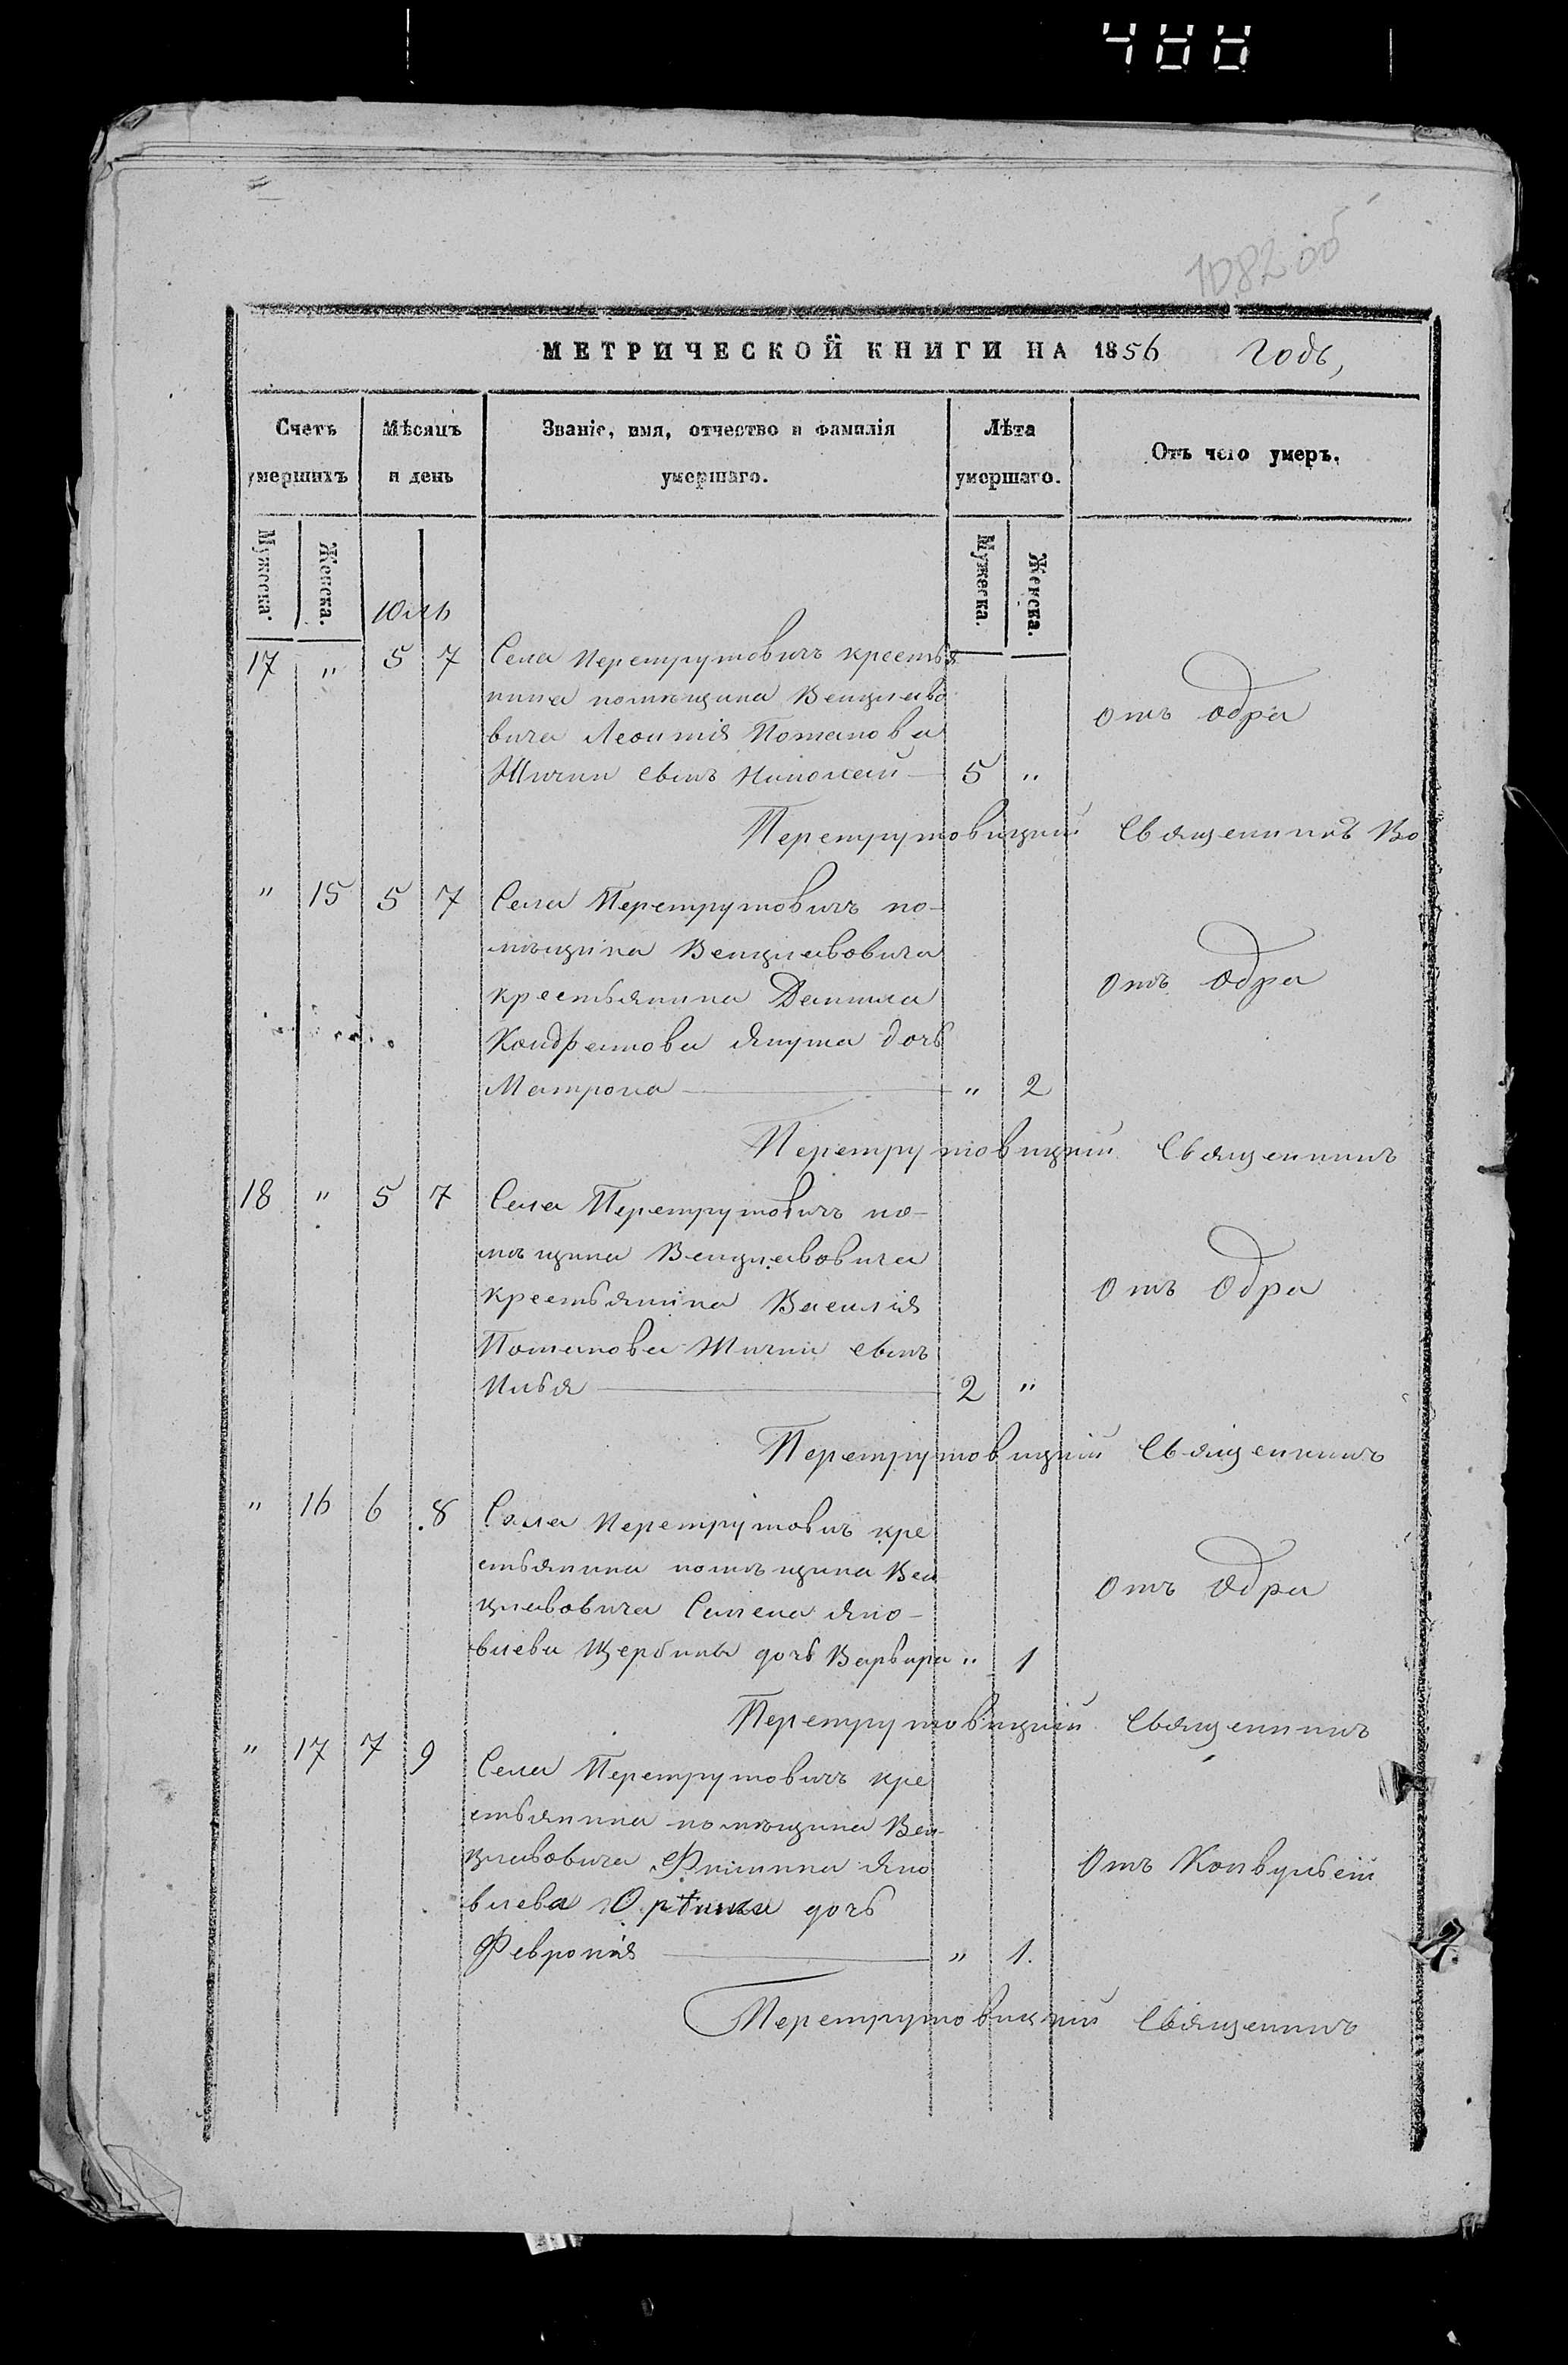 488
1082 об
МЕТРИЧЕСКОЙ КНИГИ НА 1856 годъ,
Счетъ умершихъ
Мѣсяцъ и день
Званіе, имя, отчество и фамилія умершаго.
Лѣта умершаго.
Отъ чего умеръ.
Мужеска.
Женска.
Юль
Мужеска.
Женска.
17 " 5 7 Села Перетрутовичъ крестья
нина помѣщика Венцлаво
вича Леонтія Потапова отъ Одра
сынъ Николай — 5 "
Перетрутовицкій Священникъ Во
" 15 5 7 Села Перетрутовичъ по-
мѣщика Венцлавовича
крестьянина Данила отъ Одра
Кондратова Якута дочь
Матрона — " 2
Перетрутовицкій Священникъ
18 " 5 7 Села Перетрутовичъ по-
мѣщика Венцлавовича
крестьянина Василія отъ Одра
Потапова сынъ
Илья — 2 "
Перетрутовицкій Священникъ
" 16 6 8 Села Перетрутовичъ кре
стьянина помѣщика Вен
цлавовича Семена Яко- отъ Одра
влева Щербины дочь Варвара " 1
Перетрутовицкій Священникъ
" 17 7 9 Села Перетрутовичъ кре
стьянина помѣщика Вен-
цлавовича Филиппа Яко Отъ Конвульсій
влева дочь
Февронія — " 1.
Перетрутовицкій Священникъ